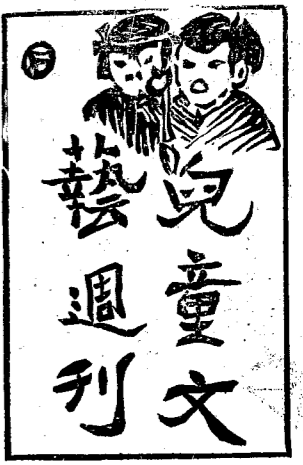 兒童文
藝週刊